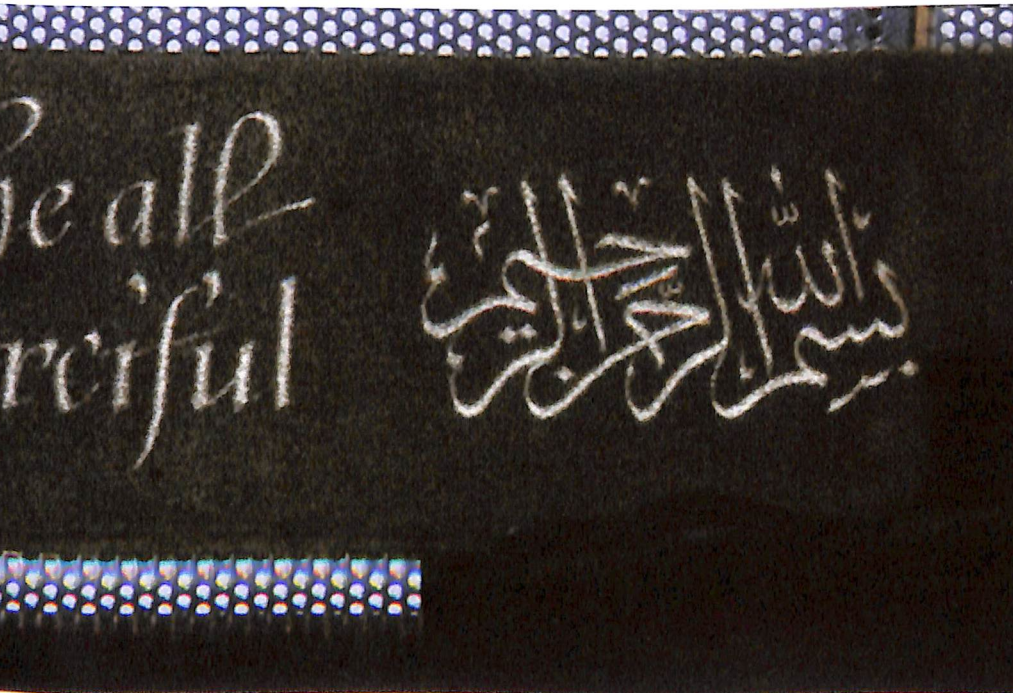 he all
rciful
بسم الله الرحمن الرحيم